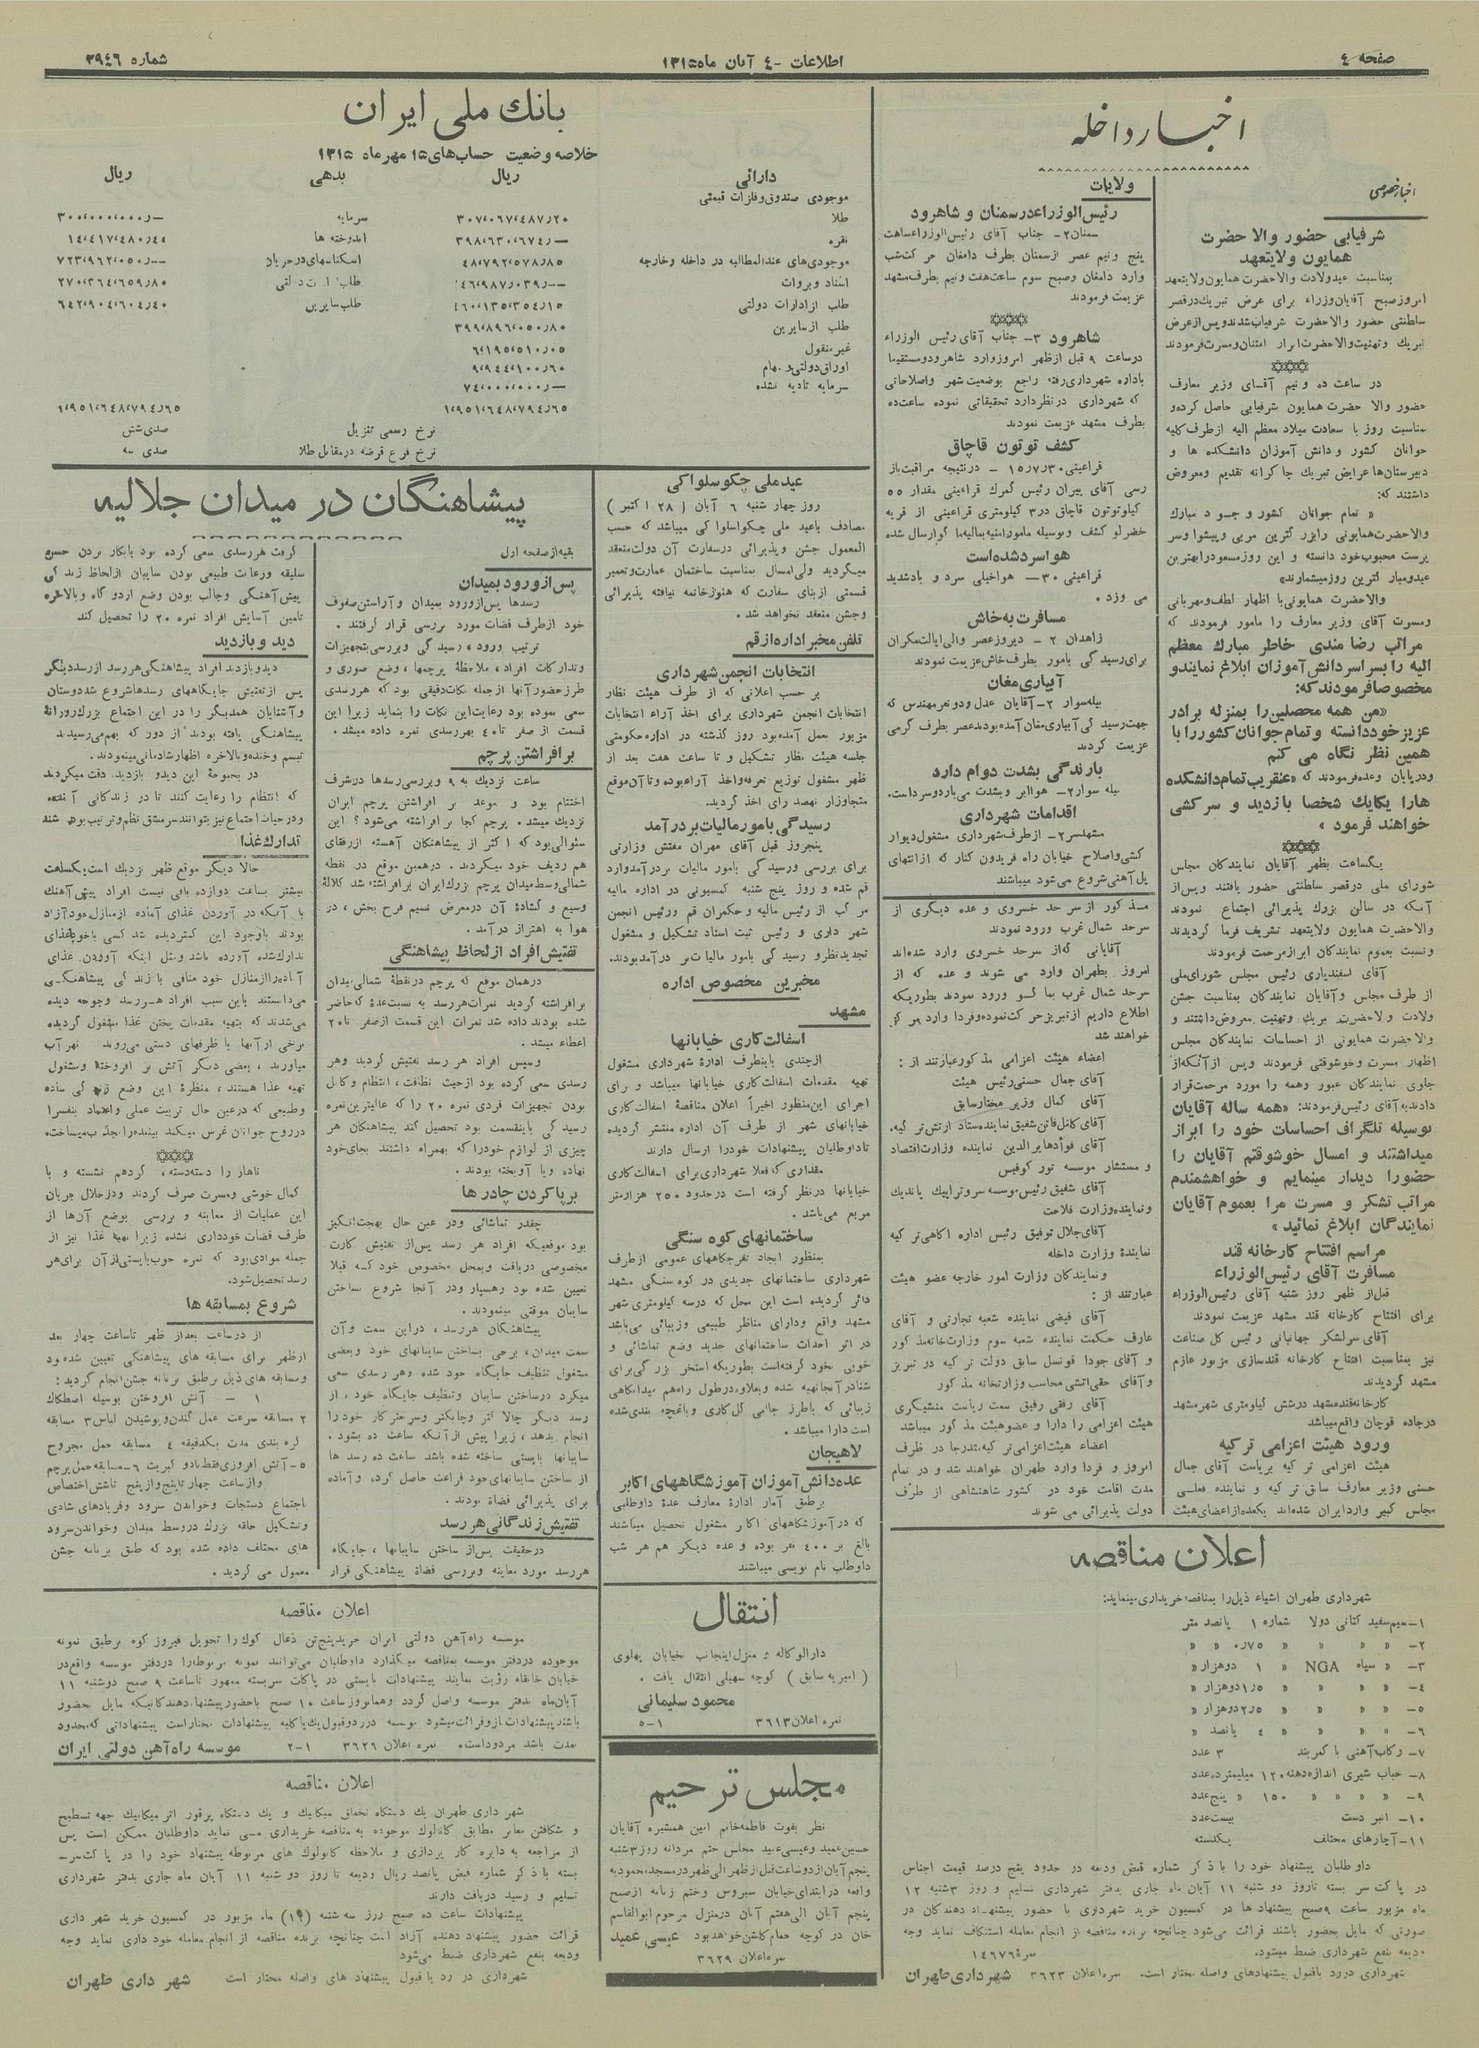 صفحه ٤
اطلاعات - ٤ آبان ماه ١٣١٥
شماره ٣٩٤٦
اخبار داخله
اخبار خصوصی
شرفیابی حضور والا حضرت
همایون ولایتعهد
بمناسبت عید ولادت والاحضرت همایون ولایتعهد
امروز صبح آقایان وزراء برای عرض تبریک در قصر
سلطنتی حضور والاحضرت شرفیاب شدند و پس از عرض
تبریک و تهنیت والاحضرت ابراز امتنان و مسرت فرمودند
در ساعت ده و نیم آقای وزیر معارف
حضور والا حضرت همایون شرفیابی حاصل کرده و
بمناسبت روز با سعادت میلاد معظم الیه از طرف کلیه
جوانان کشور و دانش آموزان دانشکده ها و
دبیرستانها عرایض تبریک چاکرانه تقدیم و معروض
داشتند که:
« تمام جوانان کشور وجود مبارک
والاحضرت همایونی را بزرگترین مربی و پیشوا و سر
پرست محبوب خود دانسته و این روز مسعود را بهترین
عید و مبارکترین روز میشمارند»
والاحضرت همایونی با اظهار لطف و مهربانی
و مسرت آقای وزیر معارف را مأمور فرمودند که
مراتب رضا مندی خاطر مبارک معظم
الیه را بسراسر دانش آموزان ابلاغ نمایند و
مخصوصا فرمودند که:
«من همه محصلین را بمنزله برادر
عزیز خود دانسته و تمام جوانان کشور را با
همین نظر نگاه می کنم
و در پایان وعده فرمودند که «عنقریب تمام دانشکده
ها را یکایک شخصا بازدید و سرکشی
خواهند فرمود »
یکساعت بظهر آقایان نمایندگان مجلس
شورای ملی در قصر سلطنتی حضور یافتند و پس از
آنکه در سالن بزرگ پذیرائی اجتماع نمودند
والاحضرت همایون ولایتعهد تشریف فرما گردیدند
و نسبت بعموم نمایندگان ابراز مرحمت فرمودند
آقای اسفندیاری رئیس مجلس شورای ملی
از طرف مجلس و آقایان نمایندگان بمناسبت جشن
ولادت والاحضرت تبریک و تهنیت معروض داشتند و
والاحضرت همایونی از احساسات نمایندگان مجلس
اظهار مسرت و خوشوقتی فرمودند و پس از آنکه از
جلوی نمایندگان عبور و همه را مورد مرحمت قرار
دادند به آقای رئیس فرمودند: «همه ساله آقایان
بوسیله تلگراف احساسات خود را ابراز
میداشتند و امسال خوشوقتم آقایان را
حضورا دیدار مینمایم و خواهشمندم
مراتب تشکر و مسرت مرا بعموم آقایان
نمایندگان ابلاغ نمائید »
مراسم افتتاح کارخانه قند
مسافرت آقای رئیس الوزراء
قبل از ظهر روز شنبه آقای رئیس الوزراء
برای افتتاح کارخانه قند مشهد عزیمت نمودند
آقای سرلشگر جهانبانی رئیس کل صناعت
نیز بمناسبت افتتاح کارخانه قندسازی مزبور عازم
مشهد گردیدند
کارخانه قند مشهد در شش کیلومتری شهر مشهد
در جاده قوچان واقع میباشد
ورود هیئت اعزامی ترکیه
هیئت اعزامی ترکیه بریاست آقای جمال
حسنی وزیر معارف سابق ترکیه و نماینده فعلی
مجلس کبیر وارد ایران شده اند یکعده از اعضای هیئت
ولایات
رئیس الوزراء در سمنان و شاهرود
سمنان ٢- جناب آقای رئیس الوزراء ساعت
پنج و نیم عصر از سمنان بطرف دامغان حرکت شب
وارد دامغان و صبح سوم ساعت هفت و نیم بطرف مشهد
عزیمت فرمودند
شاهرود ٣- جناب آقای رئیس الوزراء
در ساعت ٩ قبل از ظهر امروز وارد شاهرود و مستقیما
باداره شهرداری رفته راجع بوضعیت شهر و اصلاحاتی
که شهرداری در نظر دارد تحقیقاتی نموده ساعت ده
بطرف مشهد عزیمت نمودند
کشف توتون قاچاق
قراعینی ١٥/٧/٣٠ – در نتیجه مراقبت باز
رسی آقای پیران رئیس گمرک قراعینی مقدار ٥٥
کیلو توتون قاچاق در ٣ کیلومتری قراعینی از قریه
خضرلو کشف و بوسیله مامور امنیه بمالیه ماکو ارسال شده
هوا سرد شده است
قراعینی ٣٠ – هوا خیلی سرد و باد شدید
می وزد .
مسافرت به خاش
زاهدان ٢ - دیروز عصر والی ایالت مکران
برای رسیدگی بامور بطرف خاش عزیمت نمودند
آبیاری مغان
بیله سوار ٢- آقایان عدل و دو نفر مهندس که
جهت رسیدگی آبیاری مغان آمده بودند عصر بطرف گرمی
عزیمت کردند
بارندگی بشدت دوام دارد
بیله سوار ٢- هوا ابر و بشدت می بارد و سرد است.
اقدامات شهرداری
مشهدسر ٢- از طرف شهرداری مشغول دیوار
کشی و اصلاح خیابان راه فریدون کنار که از انتهای
پل آهنی شروع می شود میباشند
مذکور از سرحد خسروی و عده دیگری از
سرحد شمال غرب ورود نمودند
آقایانی که از سرحد خسروی وارد شده اند
امروز بطهران وارد می شوند و عده که از
سرحد شمال غرب بما کو ورود نمودند بطوریکه
اطلاع داریم از تبریز حرکت نموده و فردا وارد مرکز
خواهند شد
اعضاء هیئت اعزامی مذکور عبارتند از :
آقای جمال حسنی رئیس هیئت
آقای کمال وزیر مختار سابق
آقای کامل فاتن شفیق نماینده ستاد ارتش ترکیه.
آقای فؤاد هایر الدین نماینده وزارت اقتصاد
و مستشار موسسه تورکوفیس
آقای شفیق رئیس موسسه
و نماینده وزارت فلاحت
آقای جلال توفیق رئیس اداره آگاهی ترکیه
نماینده وزارت داخله
و نمایندگان وزارت امور خارجه عضو هیئت
عبارتند از :
آقای فیضی نماینده شعبه تجارتی و آقای
عارف حکمت نماینده شعبه سوم وزارتخانه مذکور
و آقای جودا قونسل سابق دولت ترکیه در تبریز
و آقای حقی آتشی محاسب وزارتخانه مذکور
آقای رفقی رفیق سمت ریاست منشیگری
هیئت اعزامی را دارا و عضو هیئت مذکور میباشد
اعضاء هیئت اعزامی ترکیه بتدریجا در ظرف
امروز و فردا وارد طهران خواهند شد و در تمام
مدت اقامت خود در کشور شاهنشاهی از طرف
دولت پذیرائی می شوند
بانک ملی ایران
خلاصه وضعیت حسابهای ١٥ مهرماه ١٣١٥
دارائی ریال بدهی ریال
موجودی صندوق و فلزات قیمتی
طلا ٣٠٧٬٠٦٧٬٤٨٧٫٢٠ سرمایه ٣٠٠٬٠٠٠٬٠٠٠٫–
نقره ٣٩٨٬٦٣٠٬٦٧٤٫– اندوخته ها ١٤٬٤١٧٬٤٨٠٫٤٤
موجودی های عندالمطالبه در داخله و خارجه ٤٨٬٧٩٢٬٥٧٨٫٨٥ اسکناسهای در جریان ٧٢٣٬٩٦٢٬٠٥٠٫–
اسناد و بروات ١٤٦٬٩٨٧٬٠٣٩٫– طلب ادارات دولتی ٢٧٠٬٣٦٤٬٦٥٩٫٨٠
طلب از ادارات دولتی ٤٦٠٬١٣٥٬٣٥٤٫١٥ طلب سایرین ٦٤٢٬٩٠٤٬٦٠٤٫٤٠
طلب از سایرین ٣٩٩٬٨٩٦٬٠٥٠٫٨٠
غیر منقول ٦٬١٩٥٬٥١٠٫٠٥
اوراق دولتی و سهام ٩٬٩٤٤٬١٠٠٫٦٠
سرمایه تادیه نشده ٧٤٬٠٠٠٬٠٠٠٫–
١٬٩٥١٬٦٤٨٬٧٩٤٫٦٥ ١٬٩٥١٬٦٤٨٬٧٩٤٫٦٥
نرخ رسمی تنزیل صدی شش
نرخ فرع قرضه در مقابل طلا صدی سه
عید ملی چکوسلواکی
روز چهار شنبه ٦ آبان ( ٢٨ اکتبر )
مصادف با عید ملی چکواسلوا کی میباشد که حسب
المعمول جشن و پذیرائی در سفارت آن دولت منعقد
میگردید ولی امسال بمناسبت ساختمان عمارت و تعمیر
قسمتی از بنای سفارت که هنوز خاتمه نیافته پذیرائی
و جشن منعقد نخواهد شد .
تلفن مخبر اداره از قم
انتخابات انجمن شهرداری
بر حسب اعلانی که از طرف هیئت نظار
انتخابات انجمن شهرداری برای اخذ آراء انتخابات
مزبور بعمل آمده بود روز گذشته در اداره حکومتی
جلسه هیئت نظار تشکیل و تا ساعت هفت بعد از
ظهر مشغول توزیع تعرفه و اخذ آراء بوده و تا آن موقع
متجاوز از نهصد رای اخذ گردید.
رسیدگی بامور مالیات بر درآمد
پنجروز قبل آقای مهران مفتش وزارتی
برای بررسی و رسیدگی بامور مالیات بر درآمد وارد
قم شده و روز پنج شنبه کمسیونی در اداره مالیه
مرکب از رئیس مالیه و حکمران قم و رئیس انجمن
شهرداری و رئیس ثبت اسناد تشکیل و مشغول
تجدید نظر و رسیدگی بامور مالیات بر درآمد بودند.
مخبرین مخصوص اداره
مشهد
اسفالت کاری خیابانها
از چندی باینطرف ادارۀ شهرداری مشغول
تهیه مقدمات اسفالت کاری خیابانها میباشد و برای
اجرای این منظور اخیراً اعلان مناقصۀ اسفالت کاری
خیابانهای شهر از طرف آن اداره منتشر گردیده
تا داوطلبان پیشنهادات خود را ارسال دارند
مقداری که فعلا شهرداری برای اسفالت کاری
خیابانها در نظر گرفته است در حدود ٢٥٠ هزار متر
مربع می باشد .
ساختمانهای کوه سنگی
بمنظور ایجاد تفرجگاههای عمومی از طرف
شهرداری ساختمانهای جدیدی در کوه سنگی مشهد
دائر گردیده است این محل که در سه کیلومتری شهر
مشهد واقع و دارای مناظر طبیعی و زیبائی می باشد
در اثر احداث ساختمانهای جدید وضع تماشائی و
خوبی بخود گرفته است بطوریکه استخر بزرگی برای
شنا در آنجا تهیه شده و بعلاوه در طول راه هم میدانگاهی
زیبائی که با طرز جالبی گل کاری و باغچه بندی شده
است دارا میباشد .
لاهیجان
عده دانش آموزان آموزشگاههای اکابر
بر طبق آمار ادارۀ معارف عدۀ داوطلبی
که در آموزشگاههای اکابر مشغول تحصیل میباشند
بالغ بر ٤٠٠ نفر بوده و عده دیگر هم هر شب
داوطلب نام نویسی میباشند
انتقال
دارالوکاله و منزل اینجانب خیابان پهلوی
( امیریه سابق ) کوچه سهیلی انتقال یافت .
محمود سلیمانی
نمره اعلان ٣٦١٣ ١-٥
مجلس ترحیم
نظر بفوت فاطمه خانم امین همشیره آقایان
حسین عمید و عیسی عمید مجلس ختم مردانه روز ٣ شنبه
پنجم آبان از دو ساعت قبل از ظهر الی ظهر در مسجد محمودیه
واقعه در ابتدای خیابان سیروس و ختم زنانه از صبح
پنجم آبان الی هفتم آبان در منزل مرحوم ابوالقاسم
خان در کوچه حمام کاشی خواهد بود عیسی عمید
نمره اعلان ٣٦٢٩
پیشاهنگان در میدان جلالیه
بقیه از صفحه اول
پس از ورود بمیدان
رسدها پس از ورود بمیدان و آراستن صفوف
خود از طرف قضات مورد بررسی قرار گرفتند .
ترتیب ورود ، رسیدگی و بررسی بتجهیزات
و تدارکات افراد ، ملاحظۀ پرچمها ، وضع صوری و
طرز حضور آنها از جمله نکات دقیقی بود که هر رسدی
سعی نموده بود رعایت این نکات را بنماید زیرا این
قسمت از صفر تا ٤ بهر رسدی نمره داده میشد .
برافراشتن پرچم
ساعت نزدیک به ٩ و بررسی رسدها در شرف
اختتام بود و موعد بر افراشتن پرچم ایران
نزدیک میشد . پرچم کجا برافراشته می شود؟ این
سئوالی بود که اکثر از پیشاهنگان آهسته از رفقای
هم ردیف خود میکردند . در همین موقع در نقطه
شمالی وسط میدان پرچم بزرگ ایران برافراشته شد کلالۀ
وسیع و گشادۀ آن در معرض نسیم فرح بخش ، در
هوا به اهتزاز درآمد .
تفتیش افراد از لحاظ پیشاهنگی
در همان موقع که پرچم در نقطۀ شمالی میدان
برافراشته گردید نمرات هر رسد به نسبت عدۀ که حاضر
شده بودند داده شد نمرات این قسمت از صفر تا ٢٠
اعطاء میشد .
و سپس افراد هر رسد تفتیش گردید و هر
رسدی سعی کرده بود از حیث نظافت ، انتظام و کامل
بودن تجهیزات فردی نمره ٢٠ را که عالیترین نمره
رسیدگی باینقسمت بود تحصیل کند پیشاهنگان هر
چیزی از لوازم خود را که بهمراه داشتند بجای خود
نهاده و یا آویخته بودند .
برپا کردن چادرها
چقدر تماشائی و در عین حال بهجت انگیز
بود موقعیکه افراد هر رسد پس از تفتیش کارت
مخصوصی دریافت و بمحل مخصوص خود که قبلا
تعیین شده بود رهسپار و در آنجا شروع بساختن
سایبان موقتی مینمودند .
پیشاهنگان هر رسد ، در این سمت و آن
سمت میدان ، برخی بساختن سایبانهای خود و بعضی
مشغول تنظیف جایگاه خود شده و هر رسدی سعی
میکرد در ساختن سایبان و تنظیف جایگاه خود ، از
رسد دیگر چالاکتر و چابکتر و سریعتر کار خود را
انجام بدهد ، زیرا پیش از آنکه ساعت ده بشود .
سایبانها بایستی ساخته شده باشد ساعت ده رسد ها
از ساختن سایبانهای خود فراغت حاصل کرد ، و آماده
برای پذیرائی قضاة بودند .
تفتیش زندگانی هر رسد
در حقیقت پس از ساختن سایبانها ، جایگاه
هر رسد مورد معاینه و بررسی قضاة پیشاهنگی قرار
گرفت هر رسدی سعی کرده بود با بکار بردن حسن
سلیقه و رعایت طبیعی بودن سایبان از لحاظ زندگی
پیش آهنگی و جالب بودن وضع اردوگاه و بالاخره
تامین آسایش افراد نمره ٢٠ را تحصیل کند
دید و بازدید
دید و بازدید افراد پیشاهنگی هر رسد از رسد دیگر
پس از تفتیش جایگاههای رسدها شروع شد دوستان
و آشنایان همدیگر را در این اجتماع بزرگ روزانۀ
پیشاهنگی یافته بودند از دور که بهم می رسیدند
تبسم و خنده و بالاخره اظهار شادمانی مینمودند.
در بحبوحۀ این دید و بازدید دقت میکردند
که انتظام را رعایت کنند تا در زندگانی آینده
و در حیات اجتماع نیز بتوانند سرمشق نظم و ترتیب بوده شند
تدارک غذا
حالا دیگر موقع ظهر نزدیک است یکساعت
بیشتر بساعت دوازده باقی نیست افراد پیش آهنگ
با آنکه در آوردن غذای آماده از منازل خود آزاد
بودند باوجود این کمتر دیده شد کسی با خود غذای
تدارک شده آورده باشد و مثل اینکه آوردن غذای
آماده را از منازل خود منافی با زندگی پیشاهنگی
می دانستند باین سبب افراد هر رسد و جوخه دیده
می شدند که بتهیه مقدمات پختن غذا مشغول گردیده
برخی از آنها با ظرفهای دستی می روند نهر آب
میاورند ، بعضی دیگر آتش بر افروخته و مشغول
تهیه غذا هستند ، منظرۀ این وضع زندگی ساده
و طبیعی که در عین حال تربیت عملی و اعتماد بنفس را
در روح جوانان غرس میکند بیننده را مجذوب میساخت.
ناهار را دسته دسته ، گرد هم نشسته و با
کمال خوشی و مسرت صرف کردند و در خلال جریان
این عملیات از معاینه و بررسی بوضع آنها از
طرف قضات خودداری نشده زیرا تهیه غذا نیز از
جمله موادی بود که نمره خوب بایستی از آن برای هر
رسد تحصیل شود.
شروع بمسابقه ها
از دو ساعت بعد از ظهر تا ساعت چهار بعد
از ظهر برای مسابقه های پیشاهنگی تعیین شده بود
و مسابقه های ذیل بر طبق برنامه جشن انجام گردید :
١ – آتش افروختن بوسیله اصطکاک
٢ مسابقه سرعت عمل کندن و پوشیدن لباس ٣ مسابقه
گره بندی مدت یکدقیقه ٤ مسابقه حمل مجروح
٥- آتش افروزی فقط با دو کبریت ٦- مسابقه حمل پرچم
و از ساعت چهار تا پنج و از پنج تا شش اختصاص
اجتماع دستجات و خواندن سرود و فریادهای شادی
و تشکیل حلقه بزرگ در وسط میدان و خواندن سرود
های مختلف داده شده بود که طبق برنامه جشن
معمول می گردید .
اعلان مناقصه
موسسه راه آهن دولتی ایران خرید پنج تن ذغال کوک را تحویل فیروز کوه بر طبق نمونه
موجوده در دفتر موسسه بمناقصه میگذارد داوطلبان می توانند نمونه مربوطه را در دفتر موسسه واقع در
خیابان خانقاه رؤیت نمایند پیشنهادات بایستی در پاکات سربسته ممهور تا ساعت ٩ صبح دوشنبه ١١
آبان ماه بدفتر موسسه واصل گردد و همانروز ساعت ١٠ صبح با حضور پیشنهاد دهندگانیکه مایل بحضور
باشند پیشنهادات باز و قرائت میشود موسسه در رد و قبول یک یا کلیه پیشنهادات مختار است پیشنهاداتی که محدود
بمدت باشد مردود است. نمره اعلان ٣٦٢٦ ١-٢ موسسه راه آهن دولتی ایران
اعلان مناقصه
شهرداری طهران یک دستگاه نخماتی میکانیک و یک دستگاه پرفور اتر میکانیک جهة تسطیح
و شکافتن معابر مطابق کاتالوک موجوده به مناقصه خریداری می نماید داوطلبان ممکن است پس
از مراجعه به دایره کار پردازی و ملاحظه کاتولوک های مربوطه پیشنهاد خود را در پاکت سر
بسته با ذکر شماره قبض پانصد ریال ودیعه تا روز دو شنبه ١١ آبان ماه جاری بدفتر شهرداری
تسلیم و رسید دریافت دارند
پیشنهادات ساعت ده صبح روز سه شنبه (١٩) ماه مزبور در کمسیون خرید شهرداری
قرائت حضور پیشنهاد دهنده آزاد است چنانچه برنده مناقصه از انجام معامله خود داری نماید وجه
ودیعه بنفع شهرداری ضبط می شود
شهرداری در رد یا قبول پیشنهاد های واصله مختار است شهرداری طهران
اعلان مناقصه
شهرداری طهران اشیاء ذیل را بمناقصه خریداری مینماید:
١- سیم سفید کتانی دولا شماره ١ پانصد متر
٢- » » » » ٠٫٧٥ » »
٣- » سیاه NGA » ١ دو هزار »
٤- » » » » ١٫٥ دو هزار »
٥- » » » » ٢٫٥ دو هزار »
٦- » » » » ٤ پانصد »
٧- رکاب آهنی با کمربند ٣ عدد
٨- حباب شیری اندازه دهنه ١٢٠ میلیمتر ده عدد
٩- » » » » ١٥٠ » پنج عدد
١٠- انبر دست بیست عدد
١١- آچارهای مختلف یکدسته
داوطلبان پیشنهاد خود را با ذکر شماره قبض ودیعه در حدود پنج درصد قیمت اجناس
در پاکت سر بسته تا روز دو شنبه ١١ آبان ماه جاری بدفتر شهرداری تسلیم و روز ٣ شنبه ١٢
ماه مزبور ساعت ٩ صبح پیشنهاد ها در کمسیون خرید شهرداری با حضور پیشنهاد دهندگان در
صورتی که مایل بحضور باشند قرائت می شود چنانچه برنده مناقصه از انجام معامله استنکاف نماید وجه
ودیعه بنفع شهرداری ضبط میشود. نمرۀ ١٤٦٧٦
شهرداری در رد یا قبول پیشنهادهای واصله مختار است. نمره اعلان ٣٦٢٣ شهرداری طهران